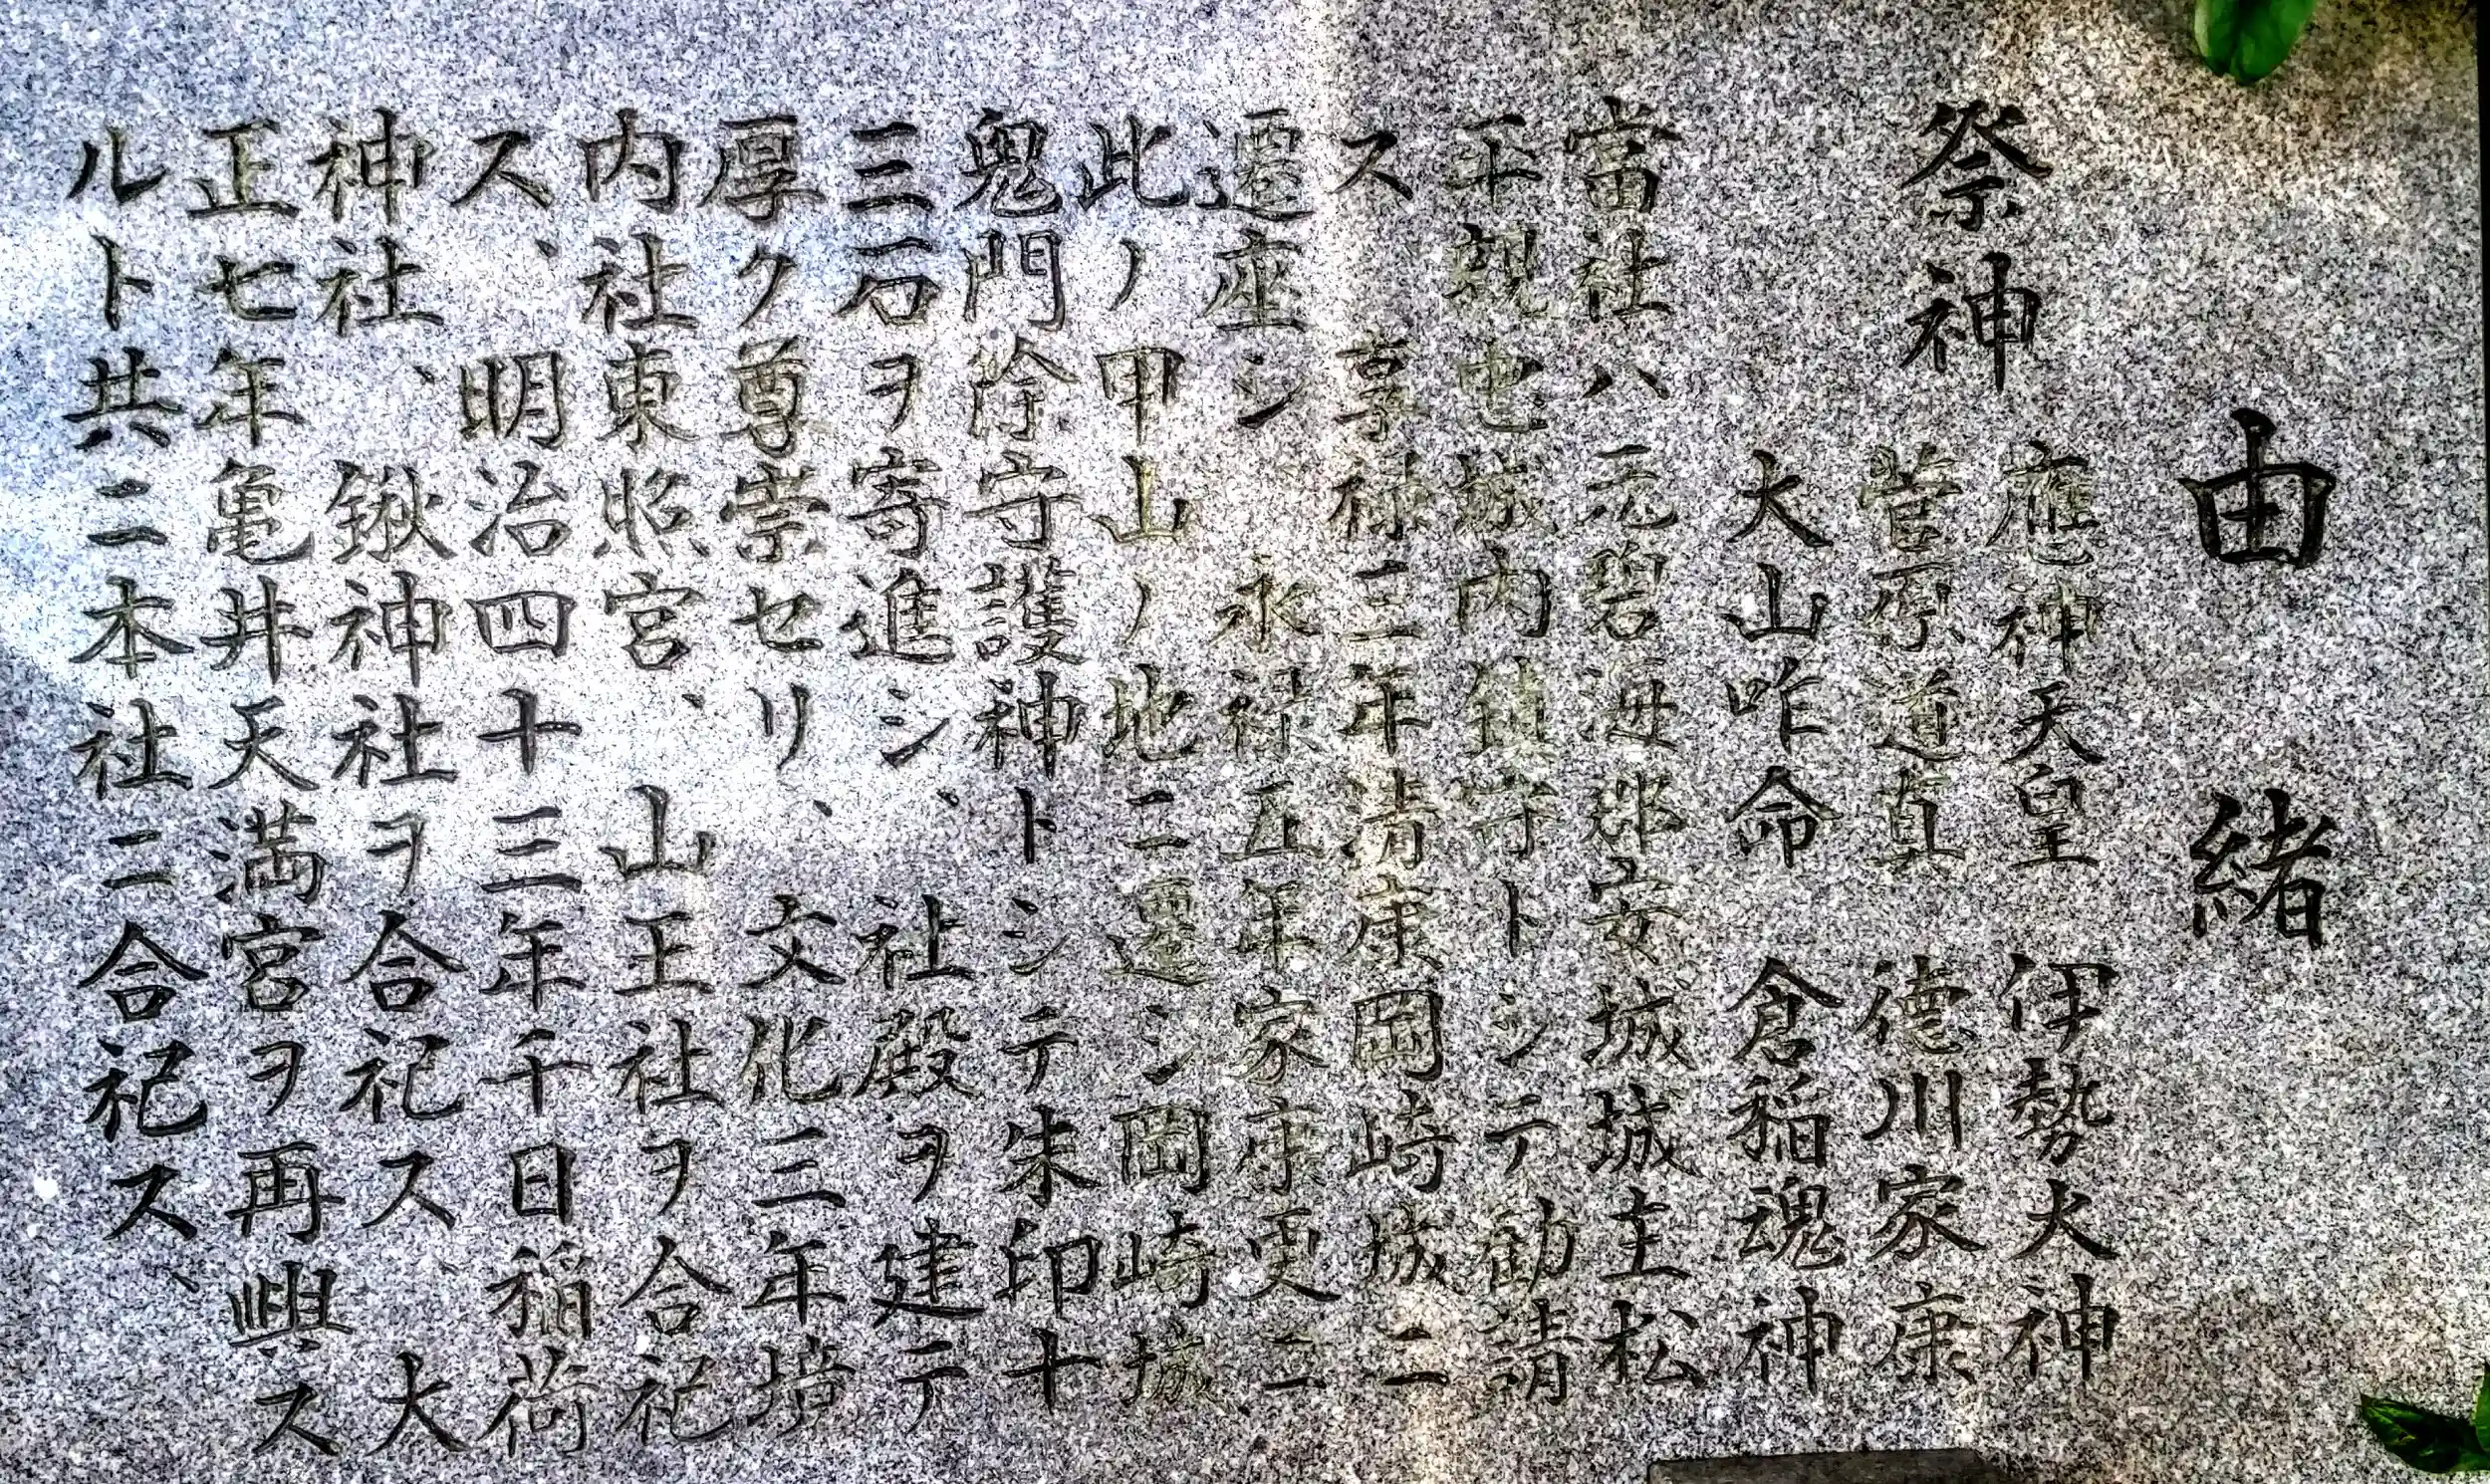 由緒
祭神
應神天皇 伊勢大神
菅原道真 德川家康
大山咋命 倉稲魂神
當社ハ元碧海郡安城城主松
平親忠城内鎮守トシテ勧請
ス 享禄三年清康岡崎城ニ
遷座シ 永禄五年家康更ニ
此ノ甲山ノ地ニ遷シ岡崎城
鬼門除守護神トシテ朱印十
三石ヲ寄進シ、社殿ヲ建テ
厚ク尊崇セリ、文化三年境
内社東照宮、山王社ヲ合祀
ス、明治四十三年千日稲荷
神社、鍬神社ヲ合祀ス 大
正七年亀井天満宮ヲ再興ス
ルト共ニ本社ニ合祀ス、